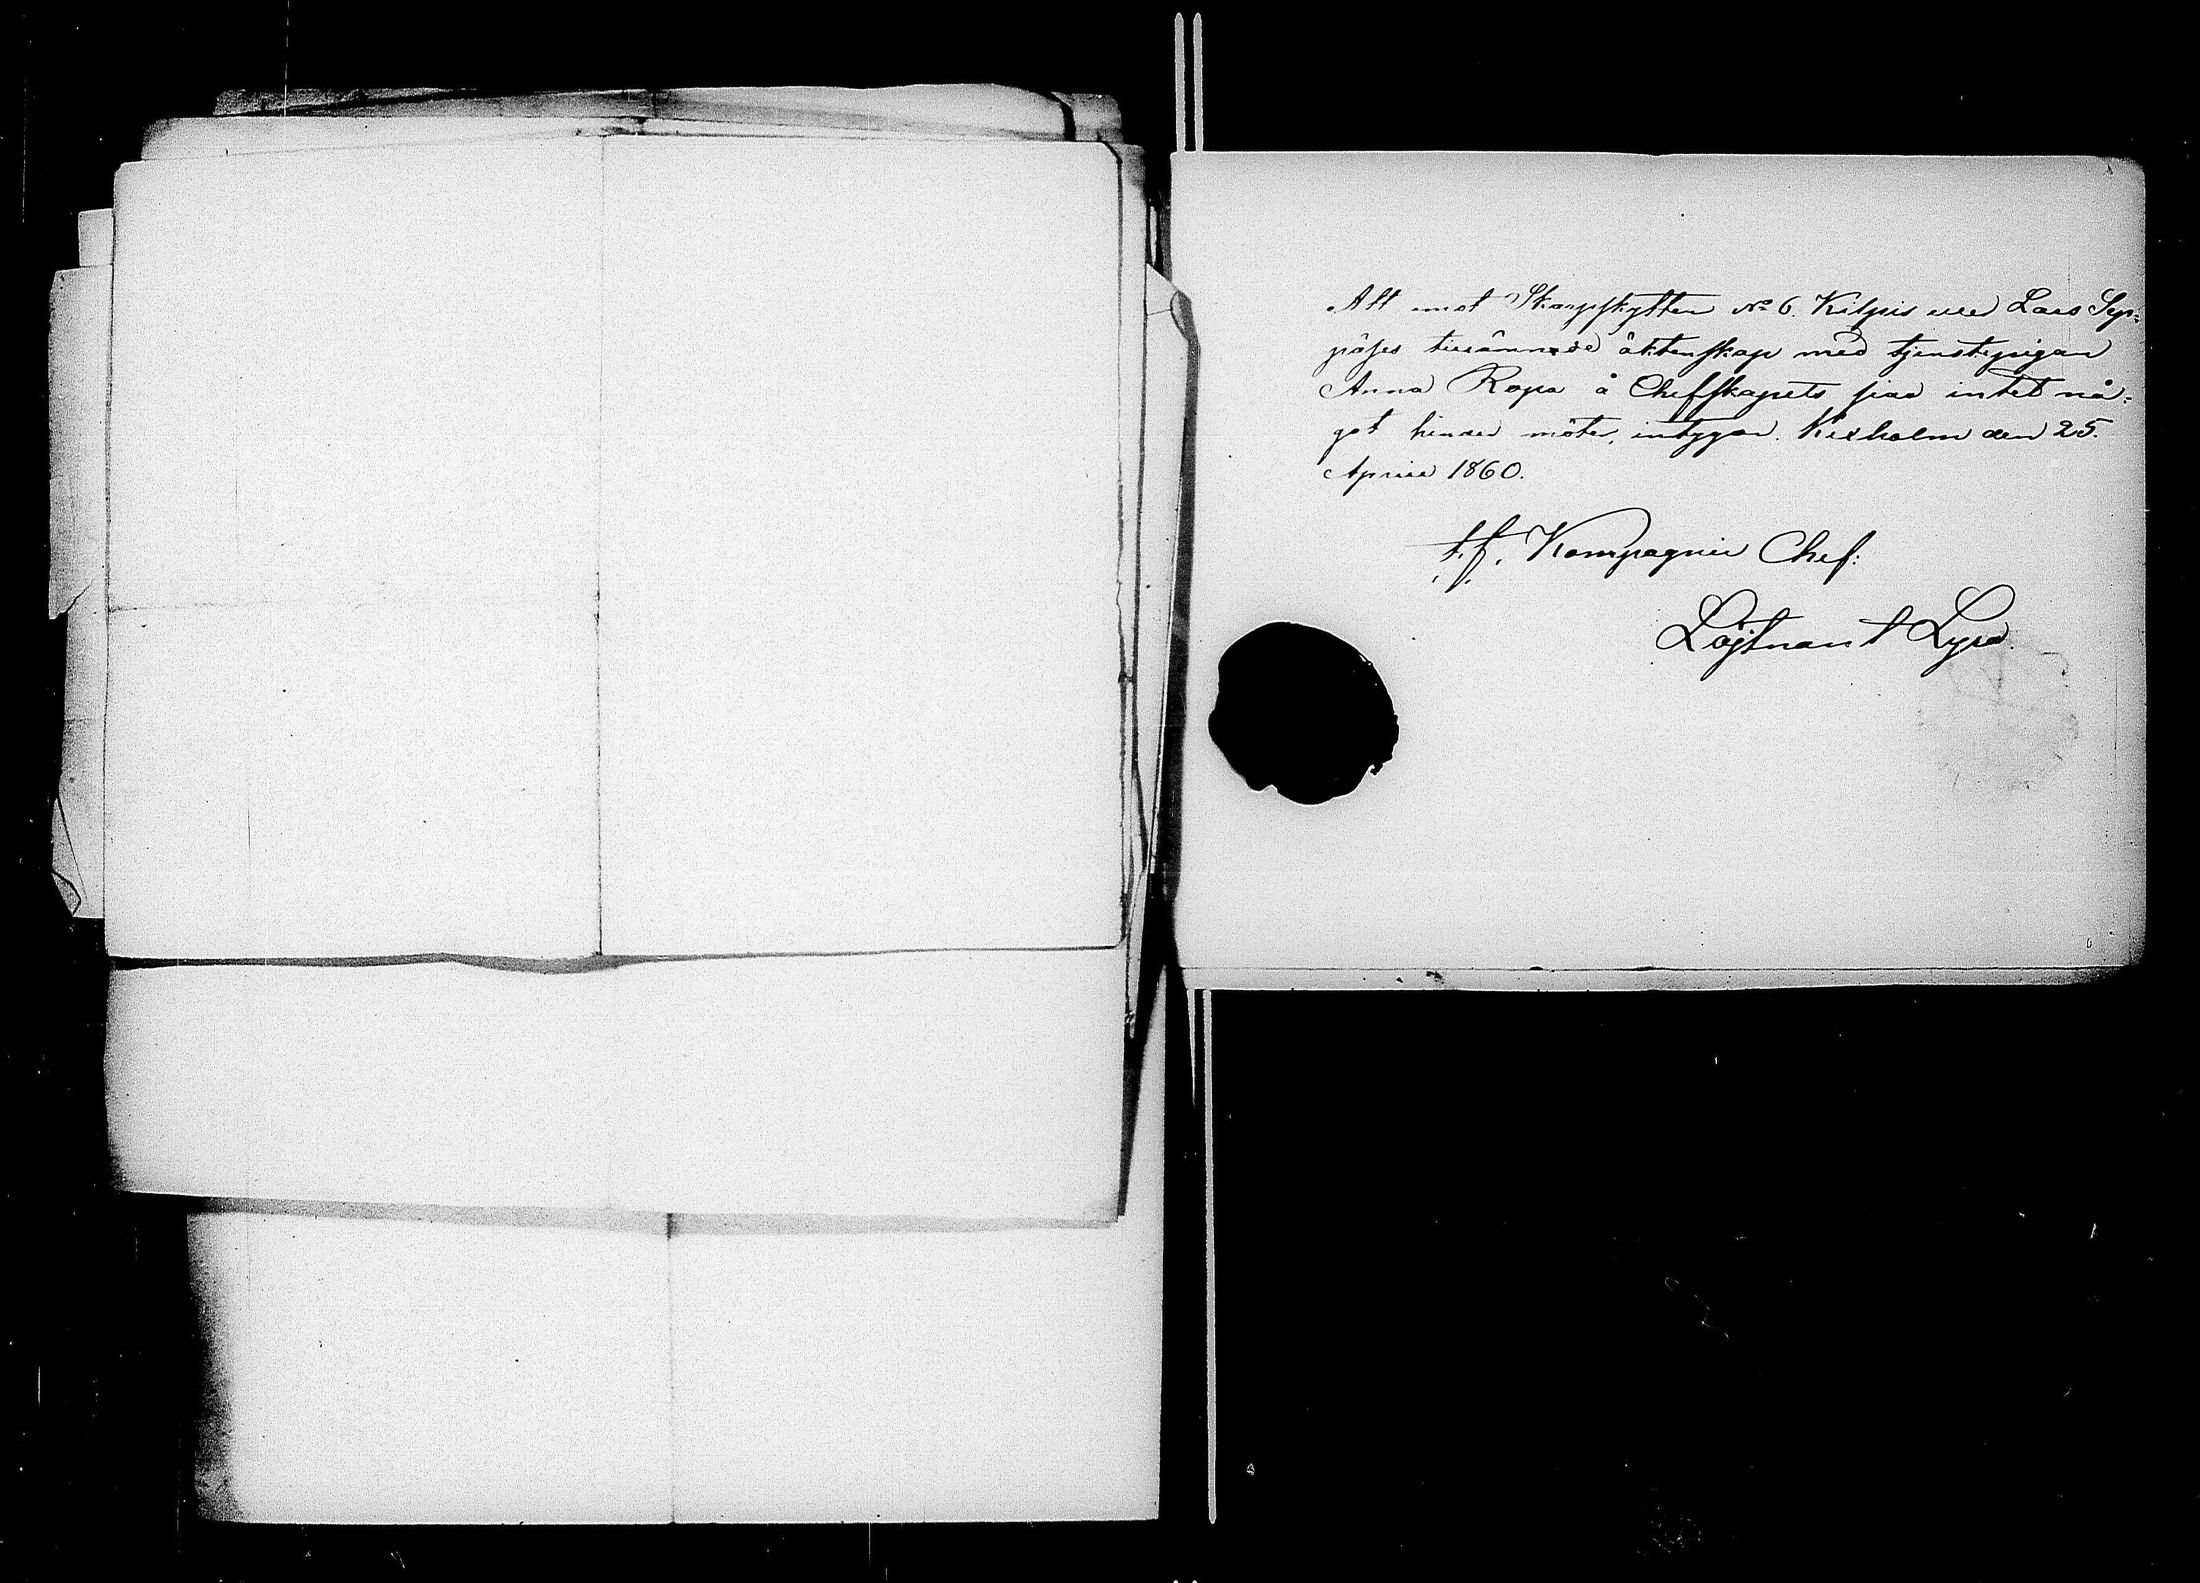 Att mot Skarpskytten No 6. Kilpis eller Lars Syp=
päses tillämnade äktenskap med tjenstepigan
Anna Ropa å Chefskapets sida intet nå=
got hinder möter, intygar. Kexholm den 25.
April 1860.
t.f. Kompagnie Chef:
Löjtnant